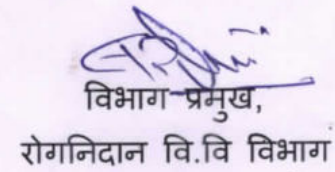 विभाग प्रमुख,
रोगनिदान वि.वि विभाग